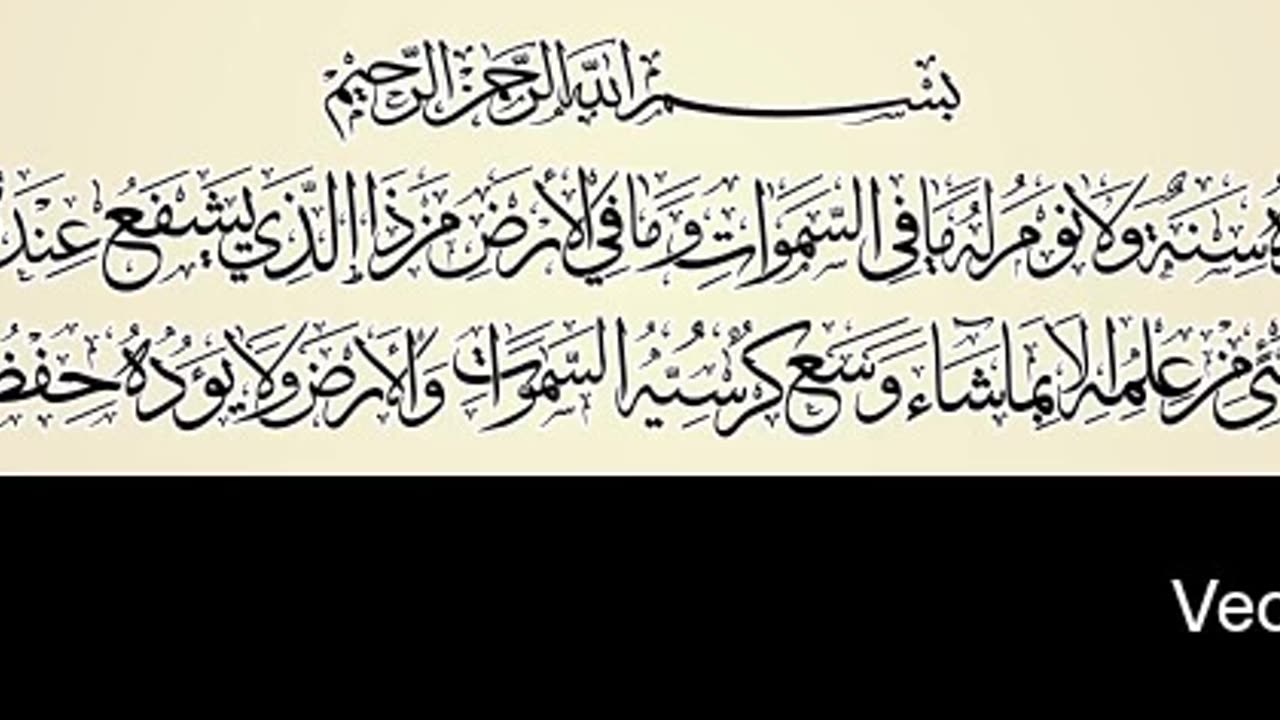 بِسْمِ اللَّهِ الرَّحْمَنِ الرَّحِيمِ
سِنَةٌ وَلَا نَوْمٌ لَهُ مَا فِي السَّمَوَاتِ وَمَا فِي الْأَرْضِ مَنْ ذَا الَّذِي يَشْفَعُ عِنْدَ
مِنْ عِلْمِهِ إِلَّا بِمَا شَاءَ وَسِعَ كُرْسِيُّهُ السَّمَوَاتِ وَالْأَرْضَ وَلَا يَؤُدُهُ حِفْظُ
Vec